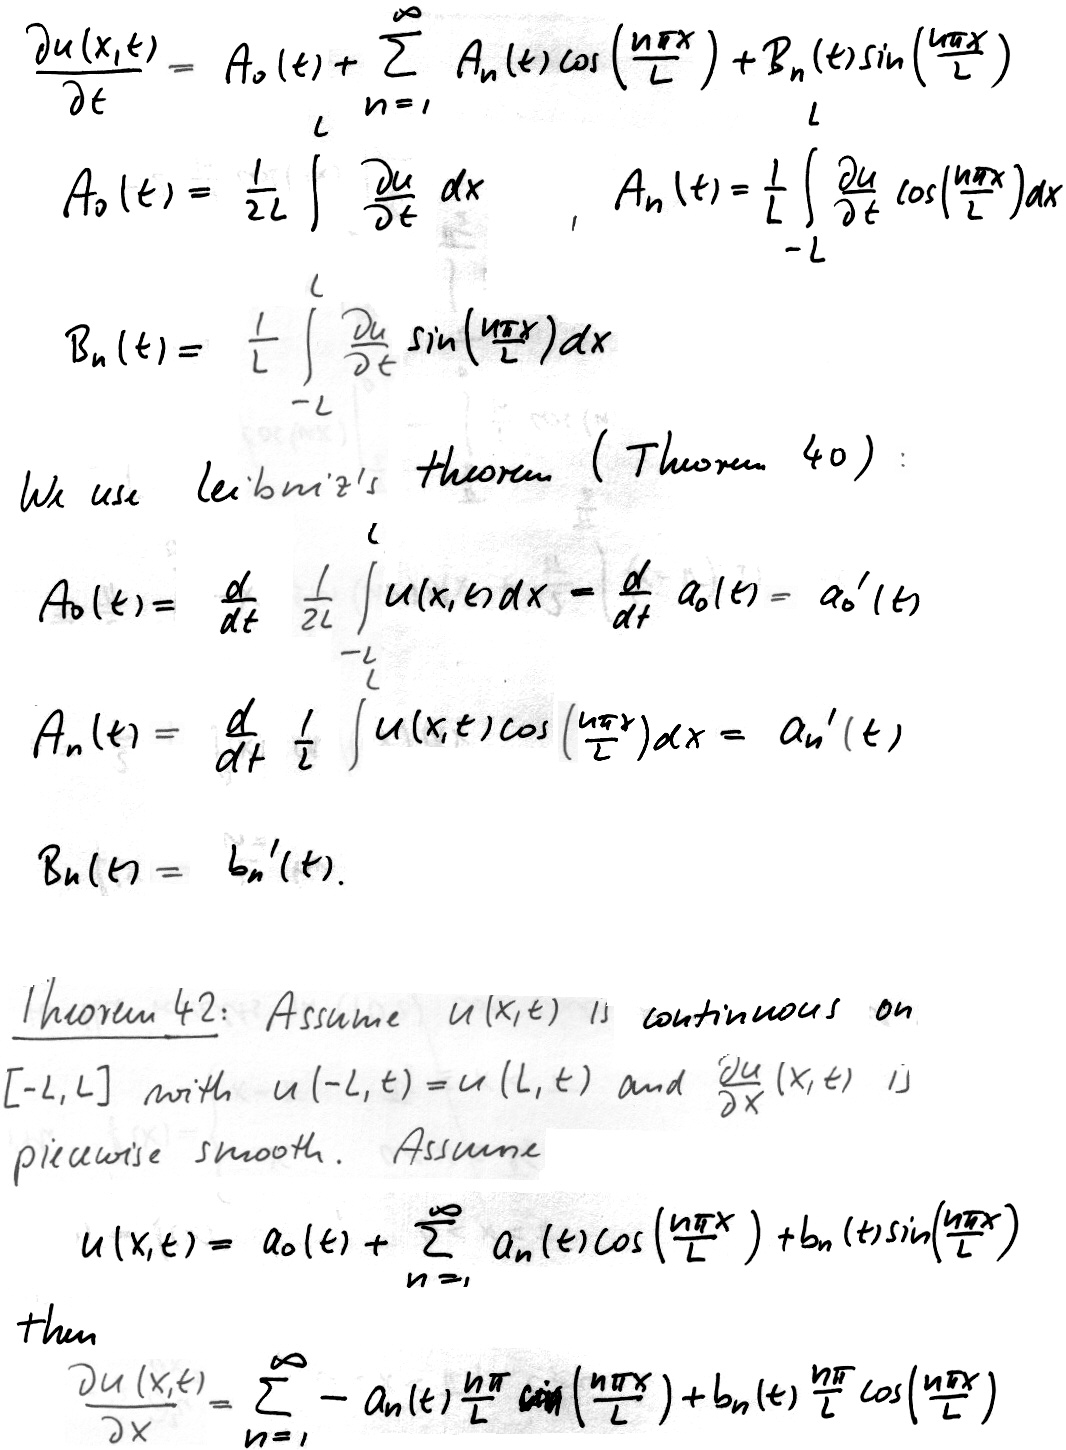 ∂u(x,t)/∂t = A₀(t) + ∑_{n=1}^{∞} Aₙ(t) cos(nπx/L) + Bₙ(t) sin(nπx/L)
A₀(t) = 1/2L ∫^{L} ∂u/∂t dx , Aₙ(t) = 1/L ∫_{-L}^{L} ∂u/∂t cos(nπx/L) dx
Bₙ(t) = 1/L ∫_{-L}^{L} ∂u/∂t sin(nπx/L) dx
We use Leibniz's theorem (Theorem 40) :
A₀(t) = d/dt 1/2L ∫_{-L}^{L} u(x,t) dx = d/dt a₀(t) = a₀'(t)
Aₙ(t) = d/dt 1/L ∫^{L} u(x,t) cos(nπx/L) dx = aₙ'(t)
Bₙ(t) = bₙ'(t).
Theorem 42: Assume u(x,t) is continuous on
[-L,L] with u(-L,t) = u(L,t) and ∂u/∂x (x,t) is
piecewise smooth. Assume
u(x,t) = a₀(t) + ∑_{n=1}^{∞} aₙ(t) cos(nπx/L) + bₙ(t) sin(nπx/L)
then
∂u(x,t)/∂x = ∑_{n=1}^{∞} - aₙ(t) nπ/L sin(nπx/L) + bₙ(t) nπ/L cos(nπx/L)